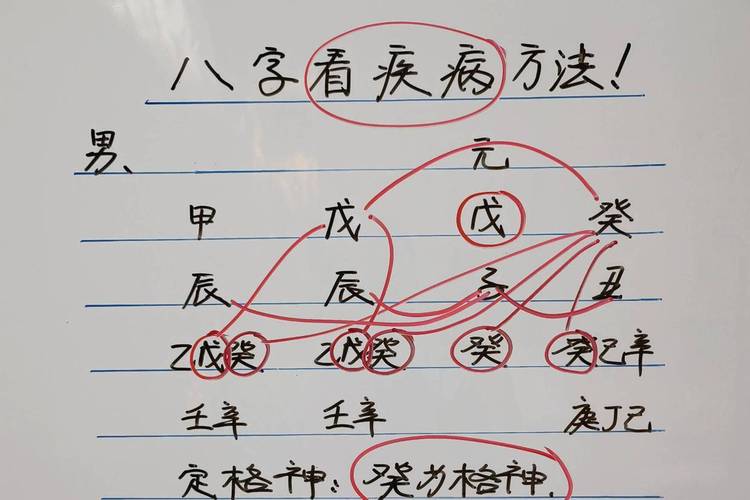 八字看疾病方法!
男、 元
甲 戊 戊 癸
辰 辰 子 丑
乙戊癸 乙戊癸 癸 癸己辛
壬辛 壬辛 庚丁己
定格神:癸为格神.